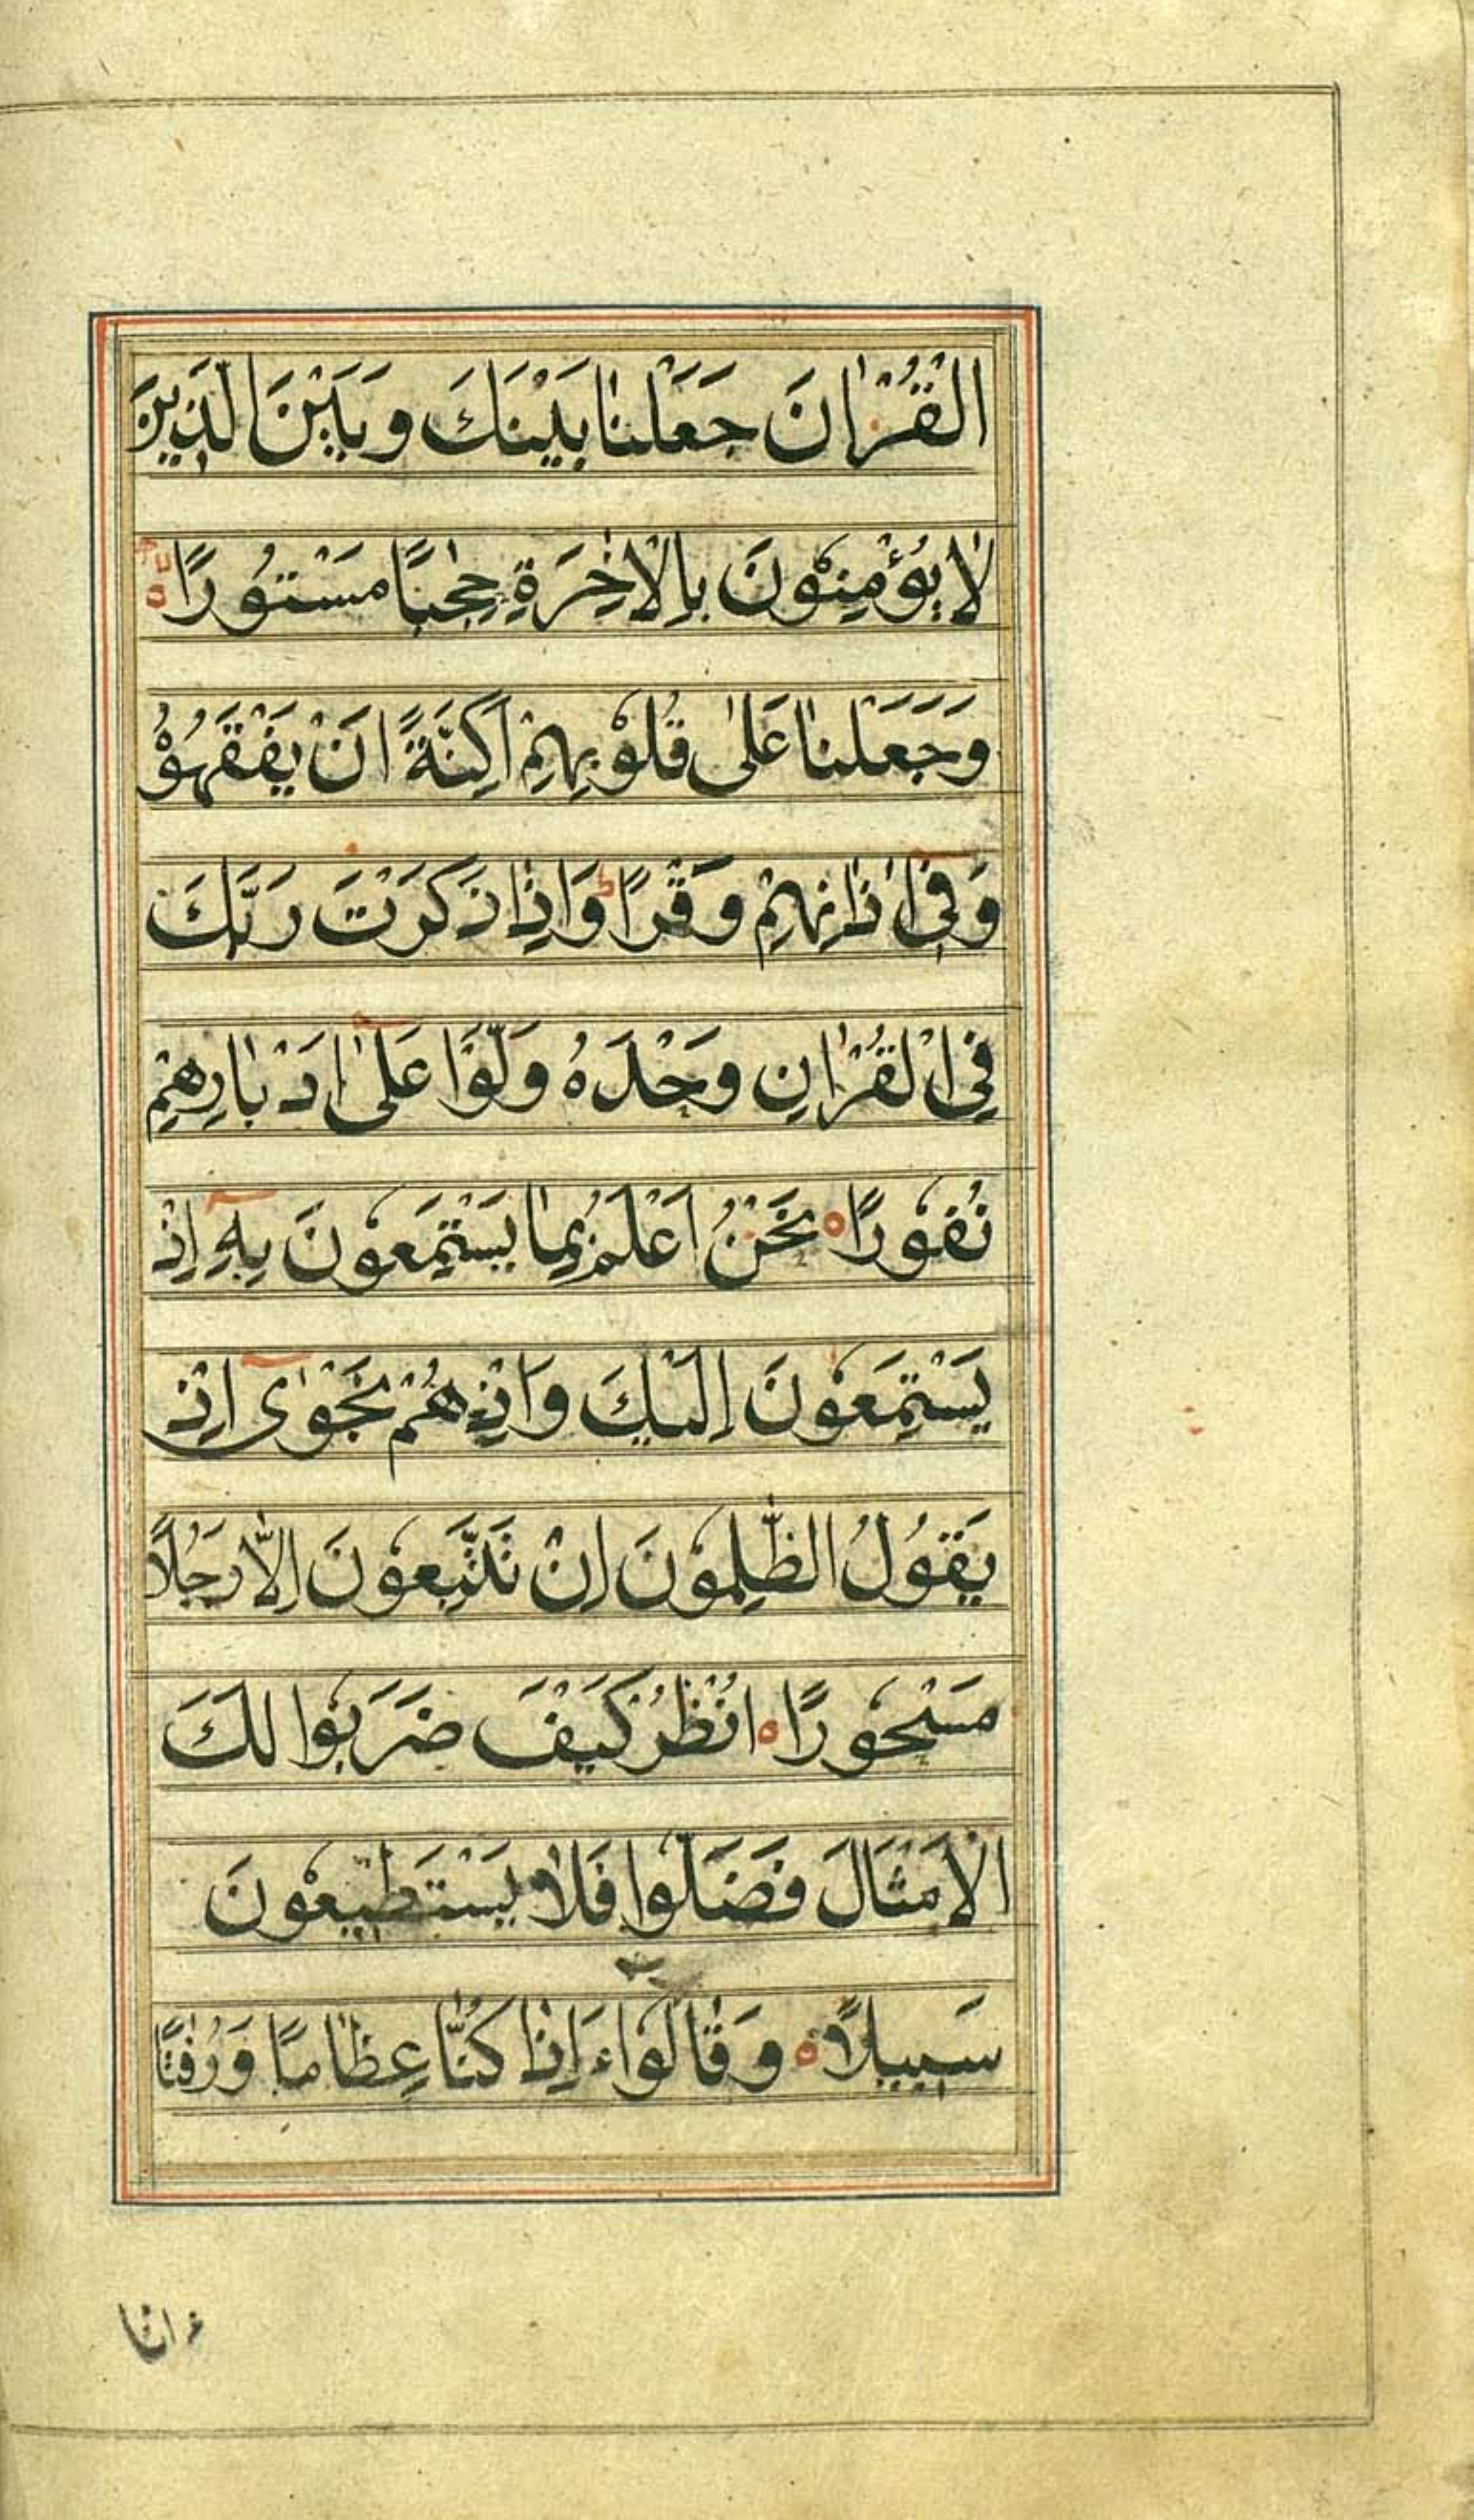 الْقُرْاٰنَ جَعَلْنٰا بَيْنَكَ وَبَيْنَ الَّذِينَ
لٰا يُؤْمِنُونَ بِالْاٰخِرَةِ حِجٰبًا مَسْتُورًا ه
وَجَعَلْنٰا عَلٰى قُلُوْبِهِمْ اَكِنَّةً اَنْ يَفْقَهُوْ
وَفِيٓ اٰذٰانِهِمْ وَقْرًا ط وَاِذٰا ذَكَرْتَ رَبَّكَ
فِي الْقُرْاٰنِ وَحْدَهُ وَلَّوْا عَلٰىٓ اَدْبٰارِهِمْ
نُفُورًا ه نَحْنُ اَعْلَمُ بِمٰا يَسْتَمِعُونَ بِهِٓ اِذْ
يَسْتَمِعُونَ اِلَيْكَ وَاِذْ هُمْ نَجْوٰىٓ اِذْ
يَقُولُ الظّٰلِمُونَ اِنْ تَتَّبِعُونَ اِلَّا رَجُلًا
مَسْحُورًا ه اُنْظُرْ كَيْفَ ضَرَبُوا لَكَ
الْاَمْثَالَ فَضَلُّوا فَلٰا يَسْتَطِيعُونَ
سَبِيلًا ه وَقٰالُوٓا ءَاِذٰا كُنّٰا عِظٰامًا وَرُفٰتًا
ءانا